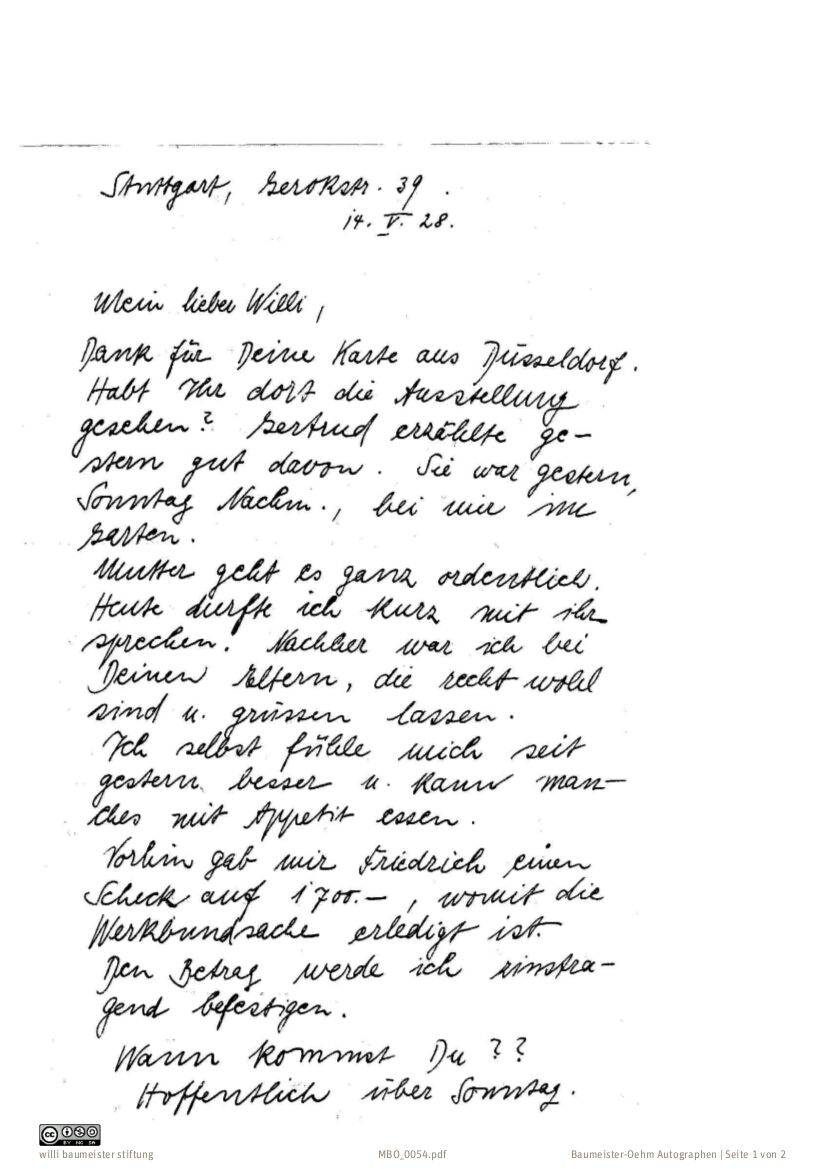 Stuttgart, Gerokstr. 39.
14. V. 28.
Mein lieber Willi,
Dank für Deine Karte aus Düsseldorf.
Habt Ihr dort die Ausstellung
gesehen? Gertrud erzählte ge-
stern gut davon. Sie war gestern,
Sonntag Nachm., bei mir im
Garten.
Mutter geht es ganz ordentlich.
Heute durfte ich kurz mit ihr
sprechen. Nachher war ich bei
Deinen Eltern, die recht wohl
sind u. grüssen lassen.
Ich selbst fühle mich seit
gestern besser u. kann man-
ches mit Appetit essen.
Vorhin gab mir Friedrich einen
Scheck auf 1700.-, womit die
Werkbundsache erledigt ist.
Den Betrag werde ich zinstra-
gend befestigen.
Wann kommst Du ??
Hoffentlich über Sonntag.
CC BY NC SA
willi baumeister stiftung
MBO_0054.pdf
Baumeister-Oehm Autographen | Seite 1 von 2